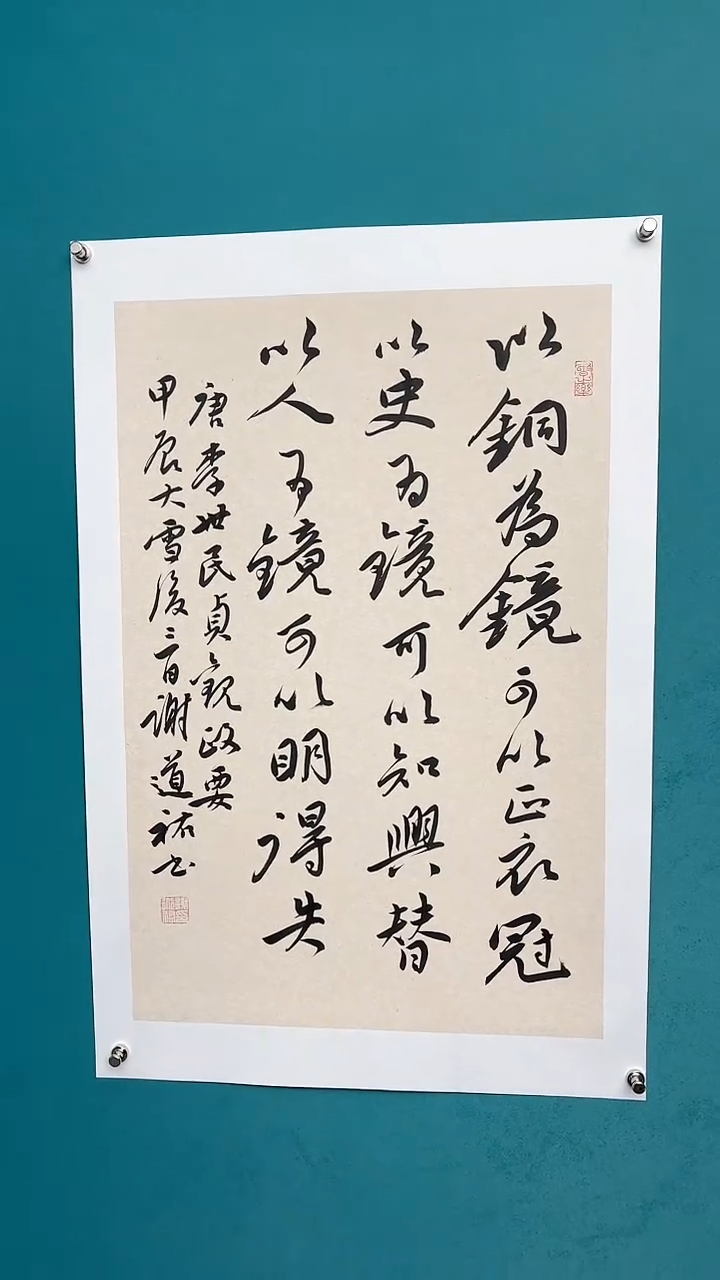 以銅為鏡可以正衣冠
以史為鏡可以知興替
以人為鏡可以明得失
唐李世民貞觀政要
甲辰大雪後三日謝道祐書